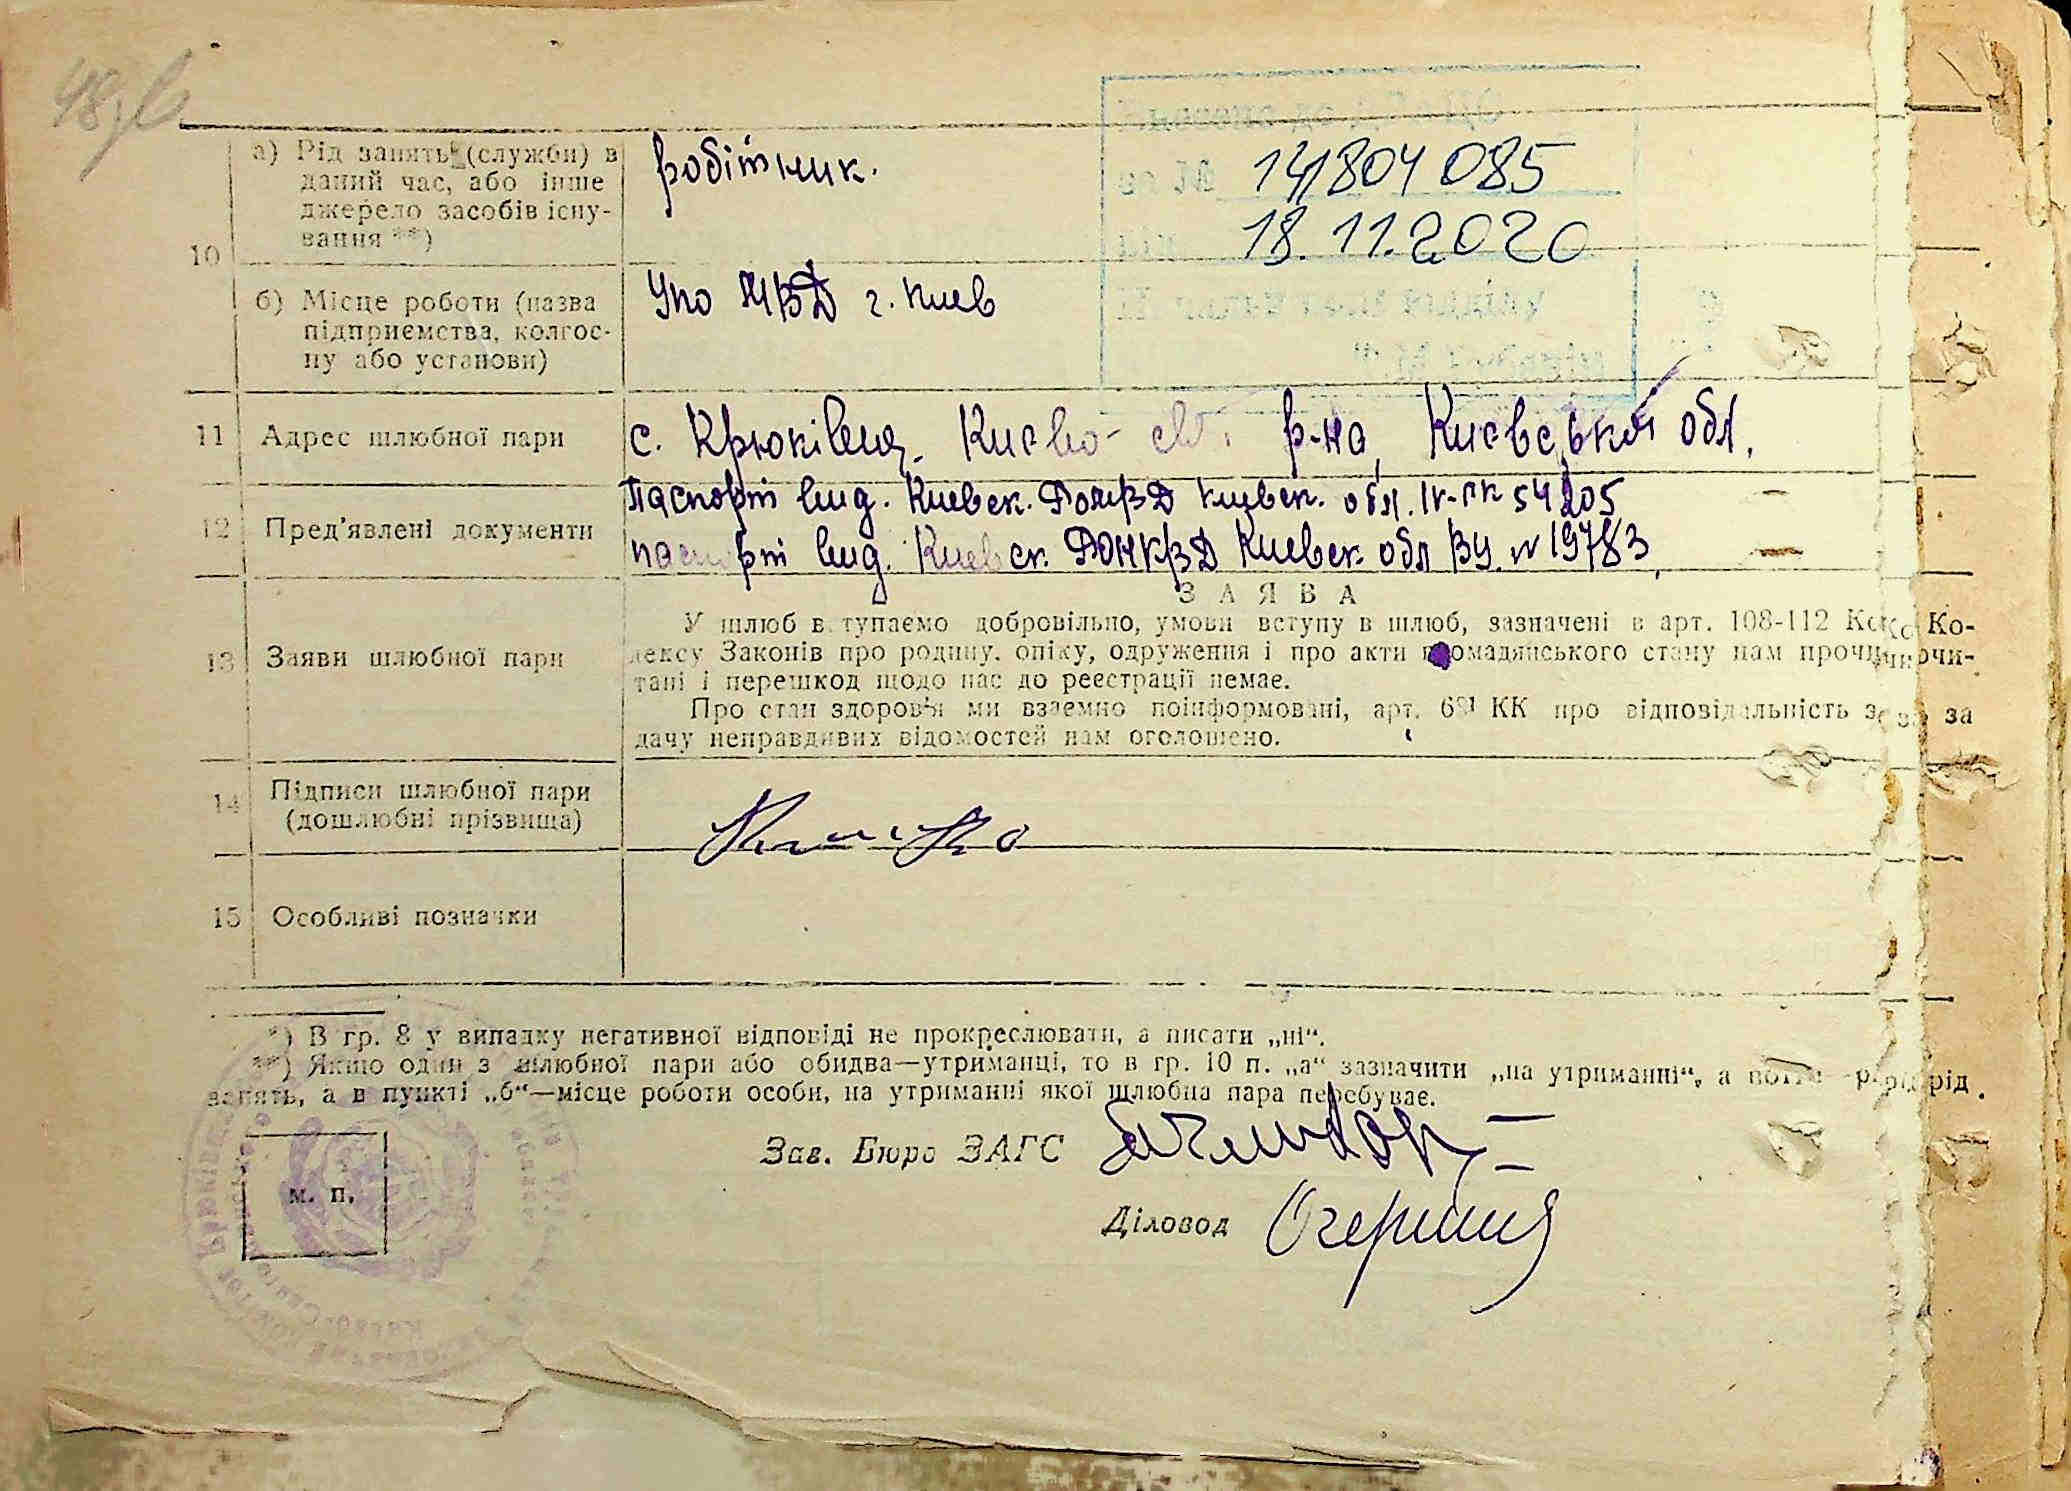 48
14804085
18.11.2020
10
а) Рід занять (служби) в
даний час, або інше
джерело засобів існу-
вання **)
робітник.
б) Місце роботи (назва
підприємства, колгос-
пу або установи)
Упо МВД г. Киев
11 Адрес шлюбної пари
с. Крюківщ. Києво- св. р-на, Києвської обл.
12 Пред'явлені документи
Паспорт вид. Киевск. обл. 54205
паспорт вид. Киевск. РОНКВД Киевск. обл ВУ. № 19783
13 Заяви шлюбної пари
ЗАЯВА
У шлюб вступаємо добровільно, умови вступу в шлюб, зазначені в арт. 108-112 Ко-
дексу Законів про родину, опіку, одруження і про акти громадянського стану нам прочи-
тані і перешкод щодо нас до реєстрації немає.
Про стан здоров'я ми взаємно поінформовані, арт. КК про відповідальність за
дачу неправдивих відомостей нам оголошено.
14 Підписи шлюбної пари
(дошлюбні прізвища)
15 Особливі позначки
*) В гр. 8 у випадку негативної відповіді не прокреслювати, а писати „ні“.
**) Якщо один з шлюбної пари або обидва—утриманці, то в гр. 10 п. „а“ зазначити „на утриманні“, а потім рід
занять, а в пункті „б“—місце роботи особи, на утриманні якої шлюбна пара перебуває.
Зав. Бюро ЗАГС
м. п.
Діловод